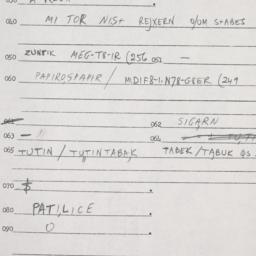 040 MI TOR NIST REJXERN O/OM STABES
050 ZUNTIK MEG-T8-IR (256 051 —
060 PAPIROSPAPIR / MDIF8-I-N78-G8ER (249
062 SIGARN
063 —
065 TUTIN / TUTINTABAK TABEK/TABUK
070 $
080 PATI,LICE
090 O